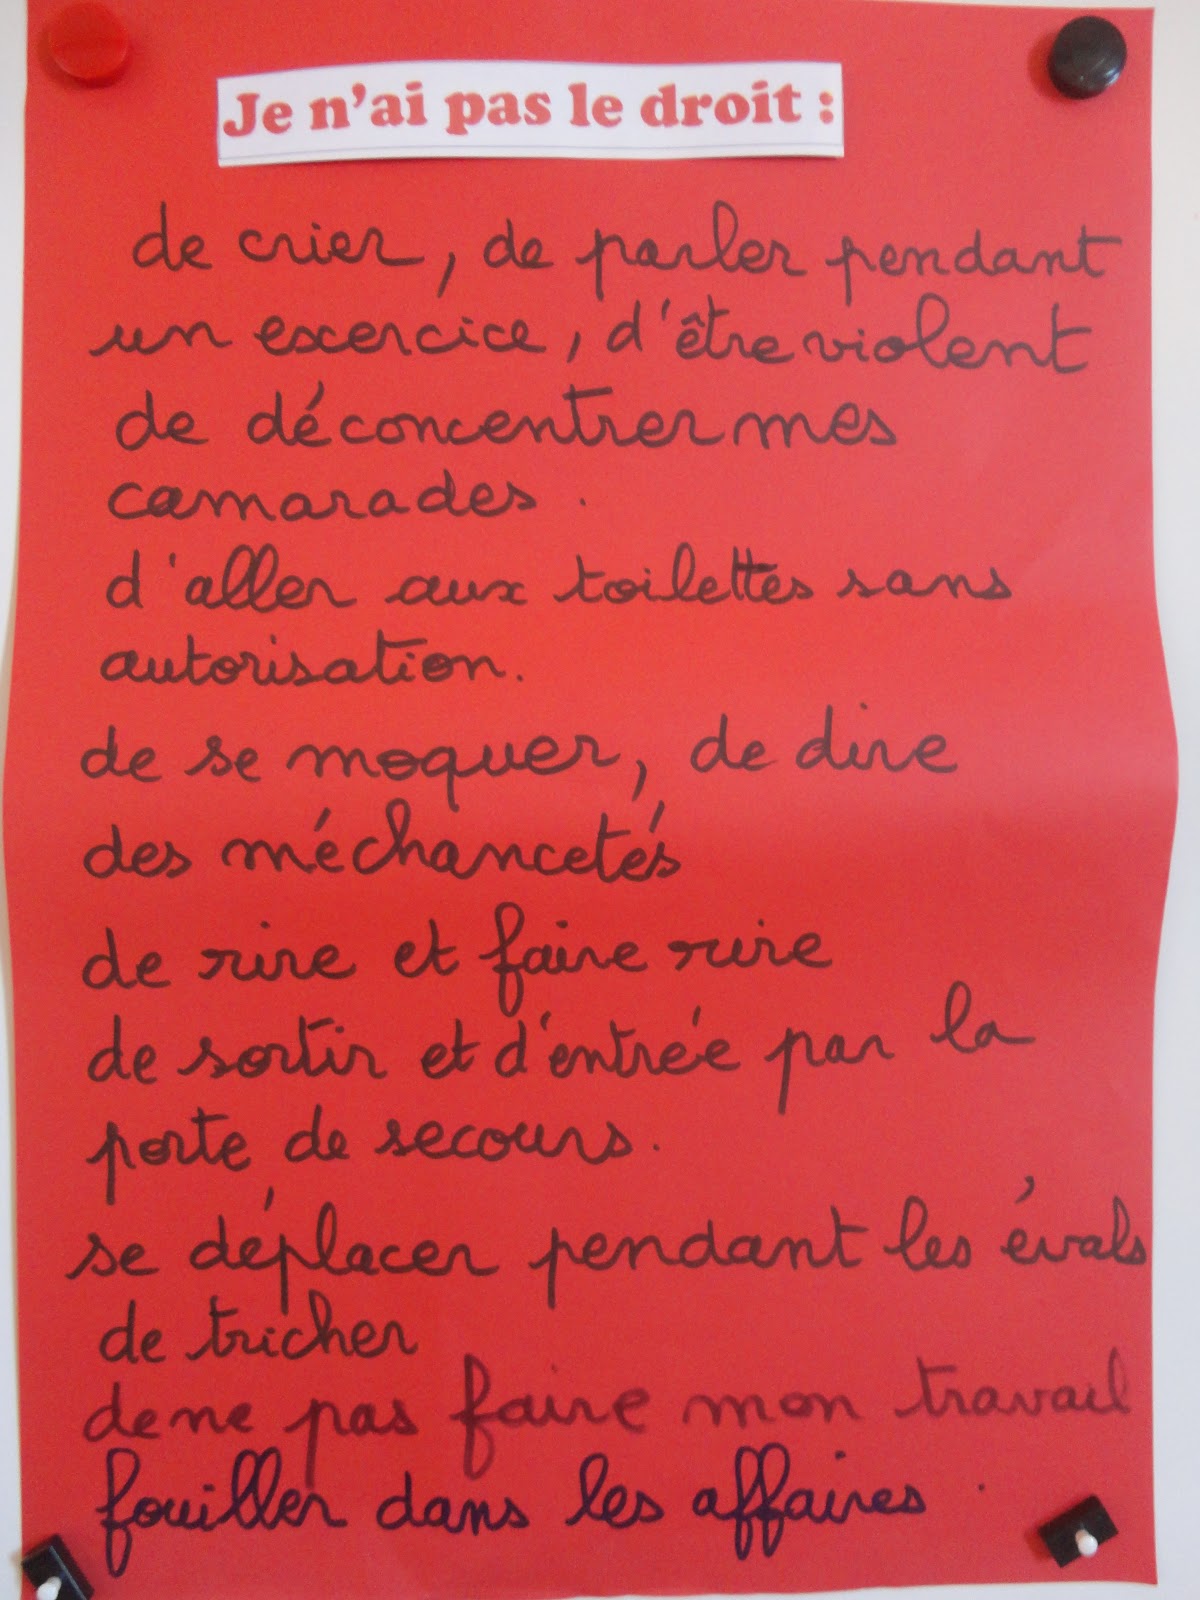 Je n'ai pas le droit :
de crier, de parler pendant
un excercice, d'être violent
de déconcentrer mes
camarades.
d'aller aux toilettes sans
autorisation.
de se moquer, de dire
des méchancetés
de rire et faire rire
de sortir et d'entrée par la
porte de secours.
se déplacer pendant les évals
de tricher
de ne pas faire mon travail
fouiller dans les affaires.